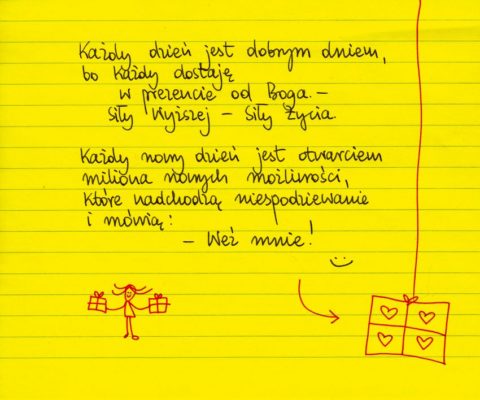 Każdy dzień jest dobrym dniem,
bo każdy dostaję
w prezencie od Boga –
Siły Wyższej – Siły Życia.
Każdy nowy dzień jest otwarciem
miliona nowych możliwości,
które nadchodzą niespodziewanie
i mówią:
– Weź mnie!